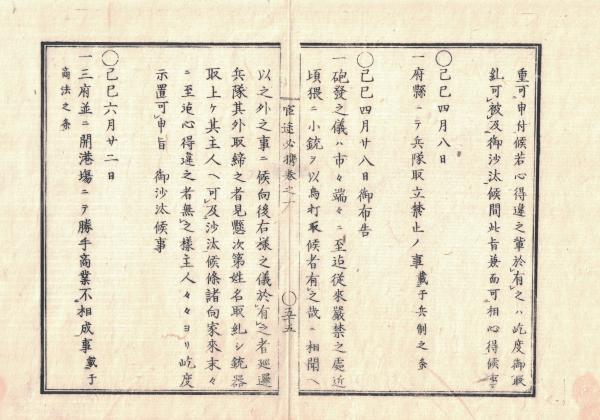 重可申付候若心得違之輩於有之ハ屹度御取
糺可被及御沙汰候間此旨兼而可相心得候事
◯己巳四月八日
一府縣ニテ兵隊取立禁止ノ事 載于兵制之条
◯己巳四月廿八日御布告
一砲發之儀ハ市々端々ニ至迠從來嚴禁之處近
頃猥ニ小銃ヲ以鳥打取候者有之哉ニ相聞ヘ
官途必携巻之十
◯五十五
以之外之事ニ候向後右様之儀於有之者巡邏
兵隊其外取締之者見懸次第姓名取糺シ銃器
取上ケ其主人ヘ可及沙汰候條諸向家來末々
ニ至迠心得違之者無之様主人々々ヨリ屹度
示置可申旨 御沙汰候事
◯己巳六月廿二日
一三府並ニ開港場ニテ勝手商業不相成事 載于
商法之条